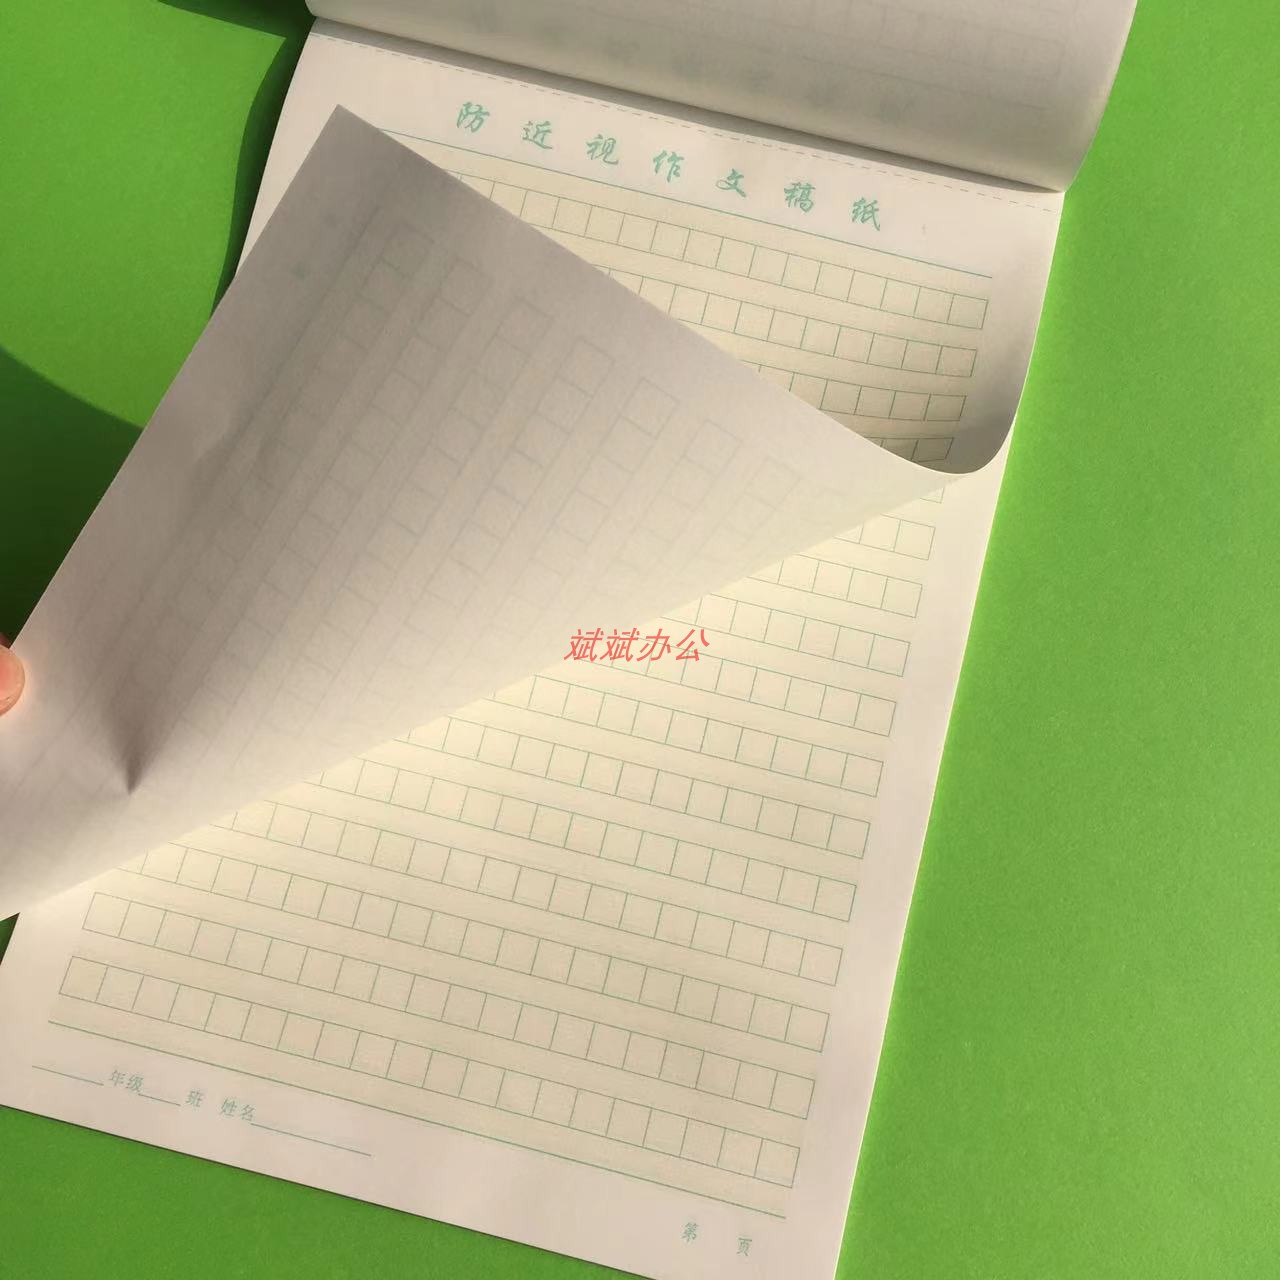 防近视作文稿纸
斌斌办公
年级 班 姓名
第 页